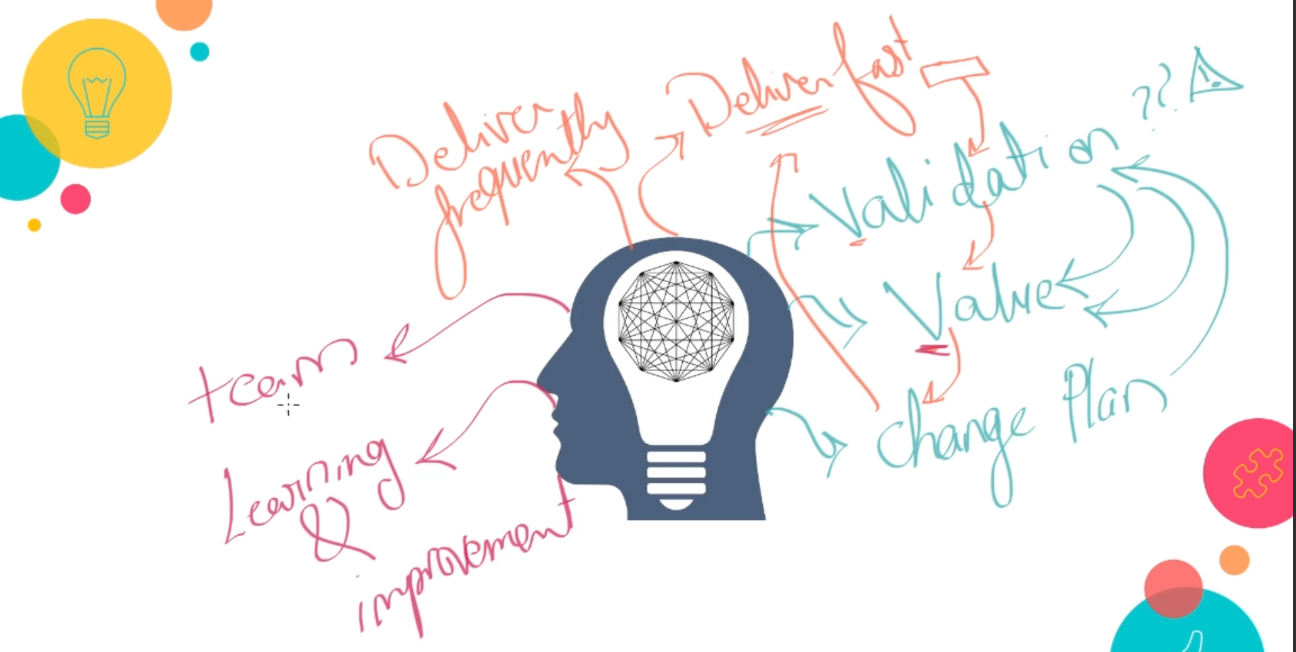 Deliver
frequently
Deliver fast
Validation ?? !
Value
change Plan
team
Learning
&
improvement